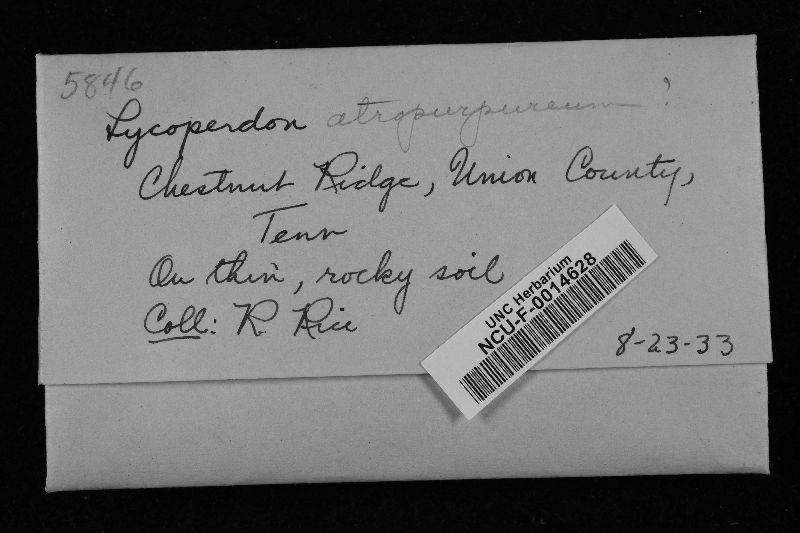 5846
Lycoperdon atropurpureum ?
Chestnut Ridge, Union County,
Tenn
On thin, rocky soil
Coll: R. Rice
UNC Herbarium
NCU-F-0014628
8-23-33